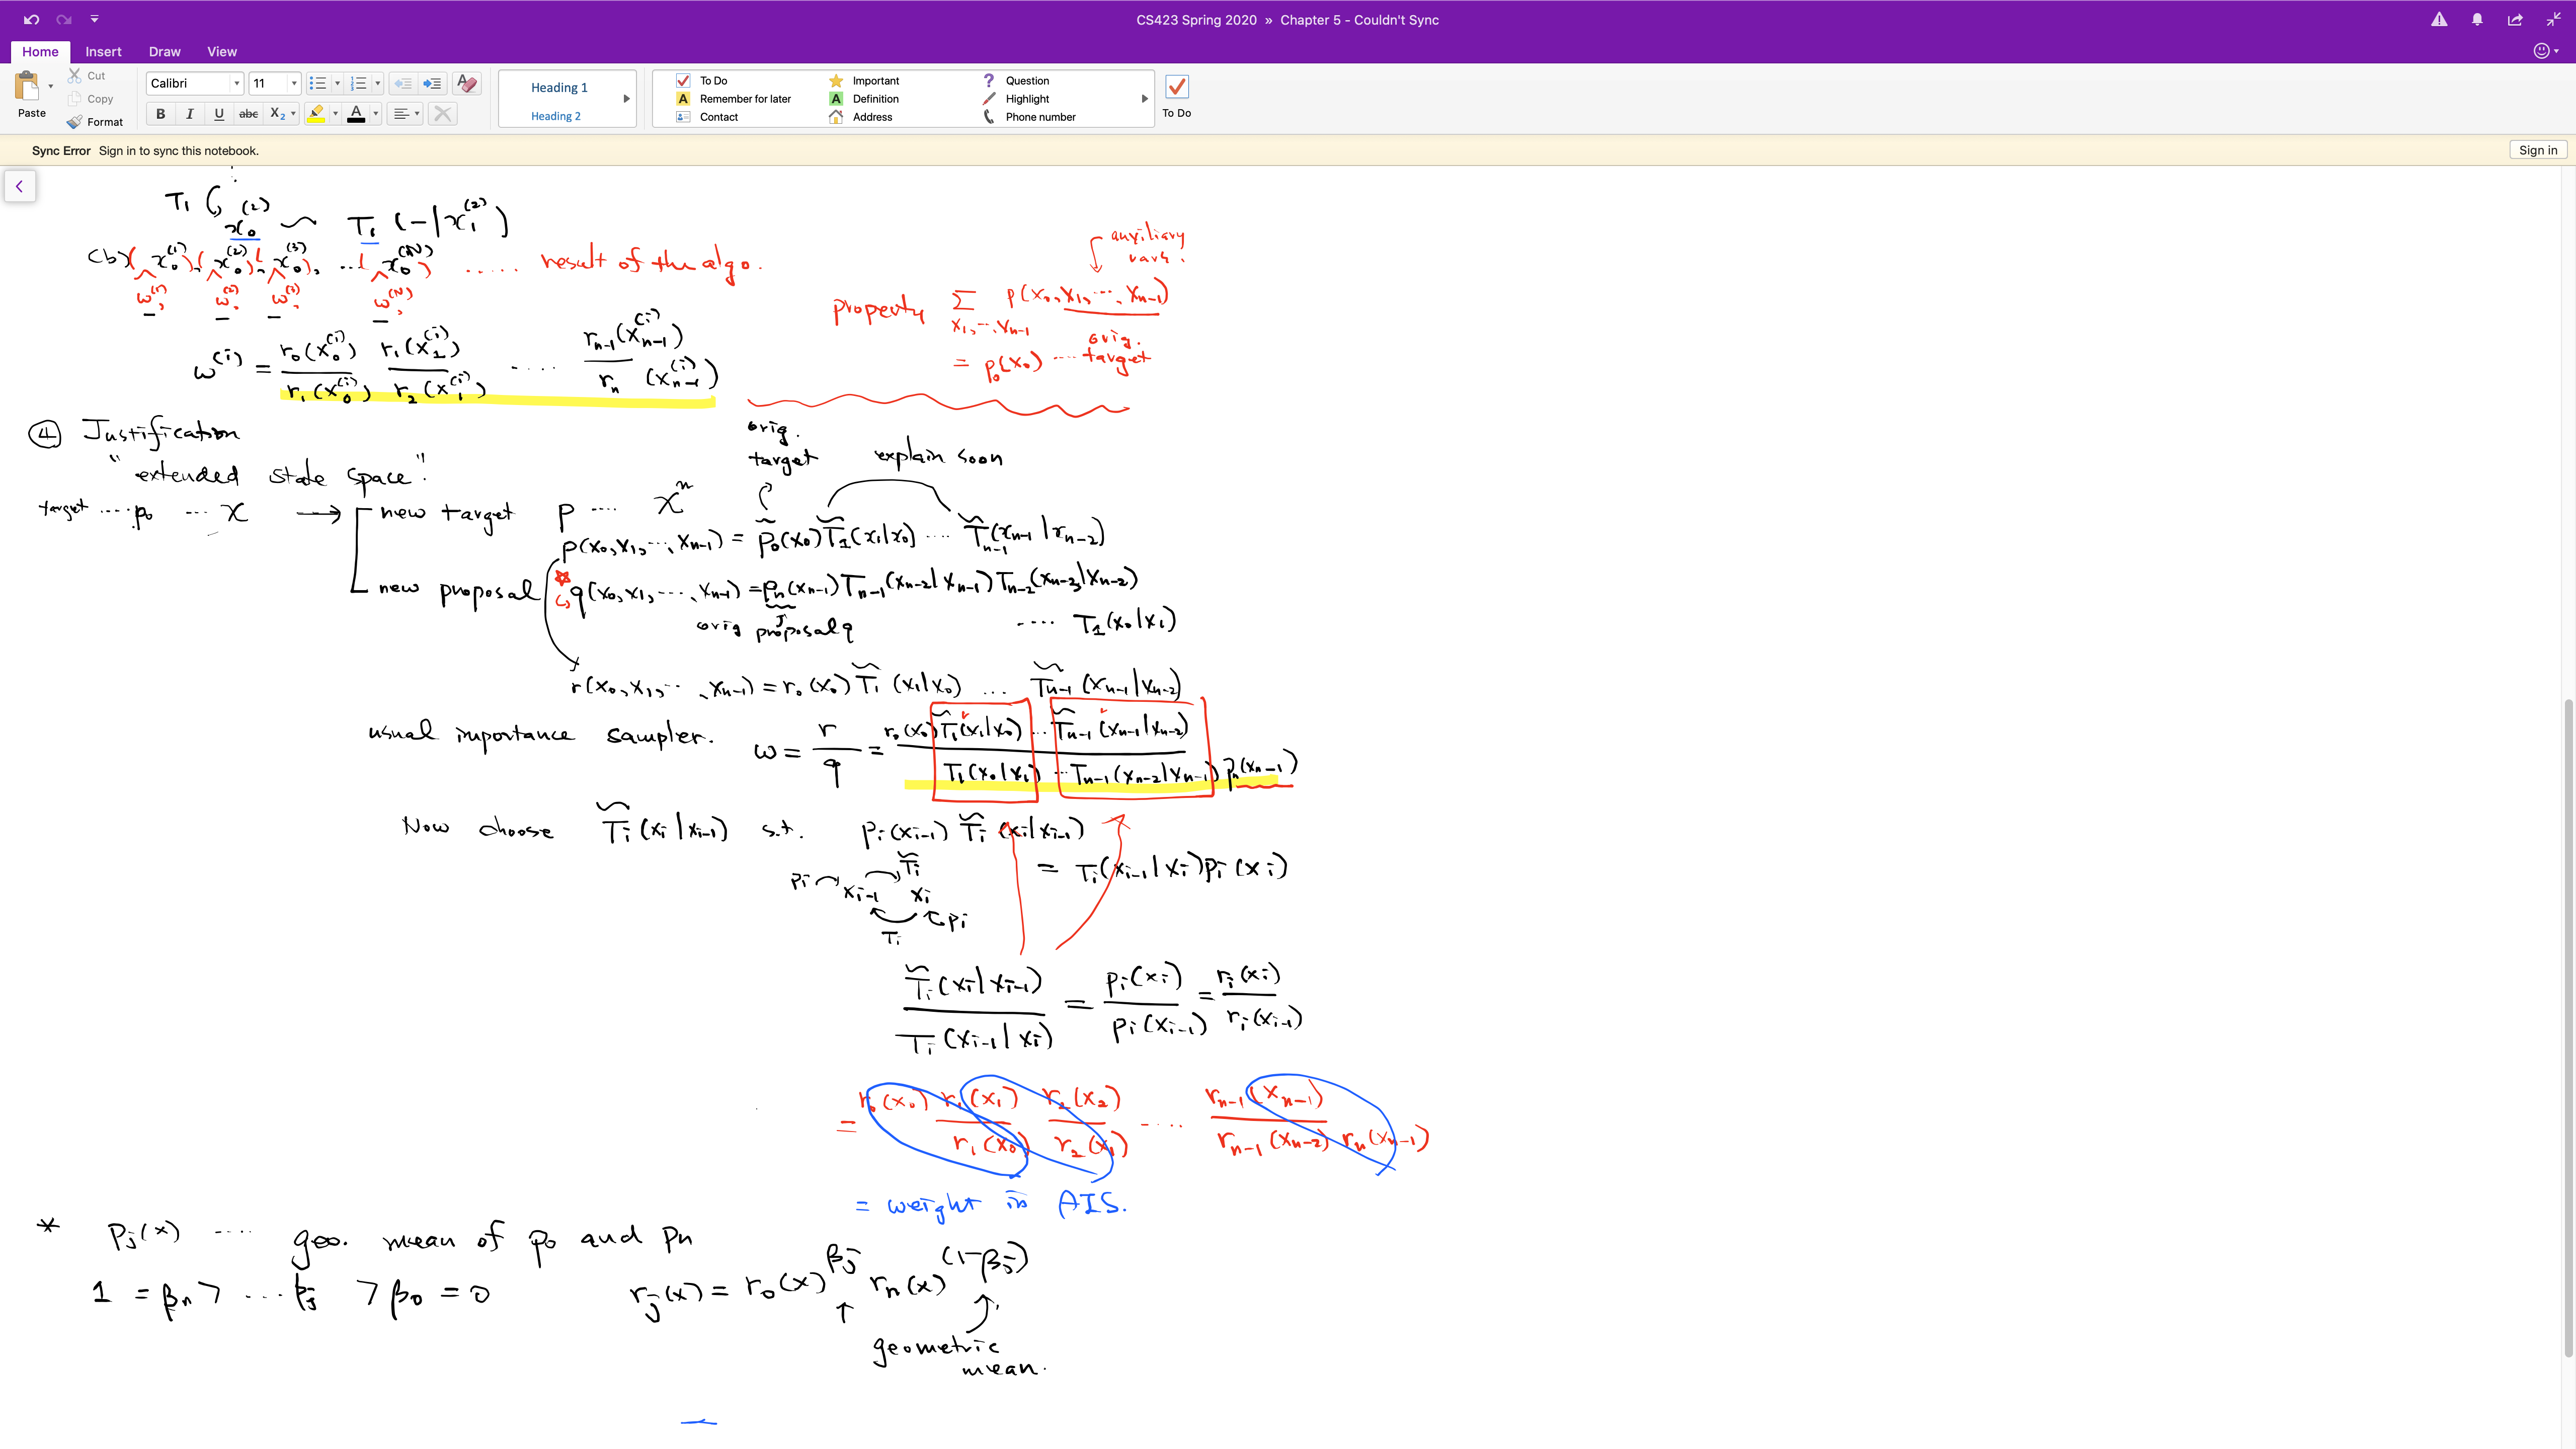 CS423 Spring 2020 » Chapter 5 - Couldn't Sync
Home Insert Draw View
Paste
Cut
Copy
Format
Calibri 11
B I U abc X₂ A
Heading 1
Heading 2
To Do Important Question
Remember for later Definition Highlight
Contact Address Phone number
To Do
Sync Error Sign in to sync this notebook.
Sign in
T₁ ( x₀⁽²⁾ ~ T₁ (-|x₁⁽²⁾)
(b) (x₀⁽¹⁾, (x₀⁽²⁾), (x₀⁽³⁾), ... (x₀⁽ᴺ⁾) ..... result of the algo.
w⁽¹⁾, w⁽²⁾, w⁽³⁾, w⁽ᴺ⁾
w⁽ⁱ⁾ = r₀(x₀⁽ⁱ⁾)/r₁(x₀⁽ⁱ⁾) r₁(x₁⁽ⁱ⁾)/r₂(x₁⁽ⁱ⁾) .... rₙ₋₁(xₙ₋₁⁽ⁱ⁾)/rₙ(xₙ₋₁⁽ⁱ⁾)
auxiliary
vars.
property Σ_{x₁,...,xₙ₋₁} p(x₀,x₁,...,xₙ₋₁)
= p₀(x₀) ... orig. target
④ Justification
"extended state space".
orig.
target explain soon
target .... p₀ ... X → new target p .... Xⁿ
p(x₀,x₁,...,xₙ₋₁) = p₀(x₀)T̃₁(x₁|x₀) .... T̃ₙ₋₁(xₙ₋₁|xₙ₋₂)
new proposal q(x₀,x₁,...,xₙ₋₁) = pₙ(xₙ₋₁)Tₙ₋₁(xₙ₋₂|xₙ₋₁)Tₙ₋₂(xₙ₋₃|xₙ₋₂)
.... T₁(x₀|x₁)
orig proposal q
r(x₀,x₁,...,xₙ₋₁) = r₀(x₀)T̃₁(x₁|x₀) ... T̃ₙ₋₁(xₙ₋₁|xₙ₋₂)
usual importance sampler. w = r/q = r₀(x₀)T̃₁(x₁|x₀) ... T̃ₙ₋₁(xₙ₋₁|xₙ₋₂) / T₁(x₀|x₁) ... Tₙ₋₁(xₙ₋₂|xₙ₋₁) pₙ(xₙ₋₁)
Now choose T̃ᵢ(xᵢ|xᵢ₋₁) s.t. pᵢ(xᵢ₋₁)T̃ᵢ(xᵢ|xᵢ₋₁)
= Tᵢ(xᵢ₋₁|xᵢ)pᵢ(xᵢ)
pᵢ xᵢ₋₁ T̃ᵢ xᵢ pᵢ
Tᵢ
T̃ᵢ(xᵢ|xᵢ₋₁)/Tᵢ(xᵢ₋₁|xᵢ) = pᵢ(xᵢ)/pᵢ(xᵢ₋₁) = rᵢ(xᵢ)/rᵢ(xᵢ₋₁)
= r₀(x₀) r₁(x₁)/r₁(x₀) r₂(x₂)/r₂(x₁) .... rₙ₋₁(xₙ₋₁)/rₙ₋₁(xₙ₋₂) rₙ(xₙ₋₁)
= weight in AIS.
* pⱼ(x) .... geo. mean of p₀ and pₙ
1 = βₙ > ... βⱼ > β₀ = 0 rⱼ(x) = r₀(x)^βⱼ rₙ(x)^(1-βⱼ)
geometric
mean.